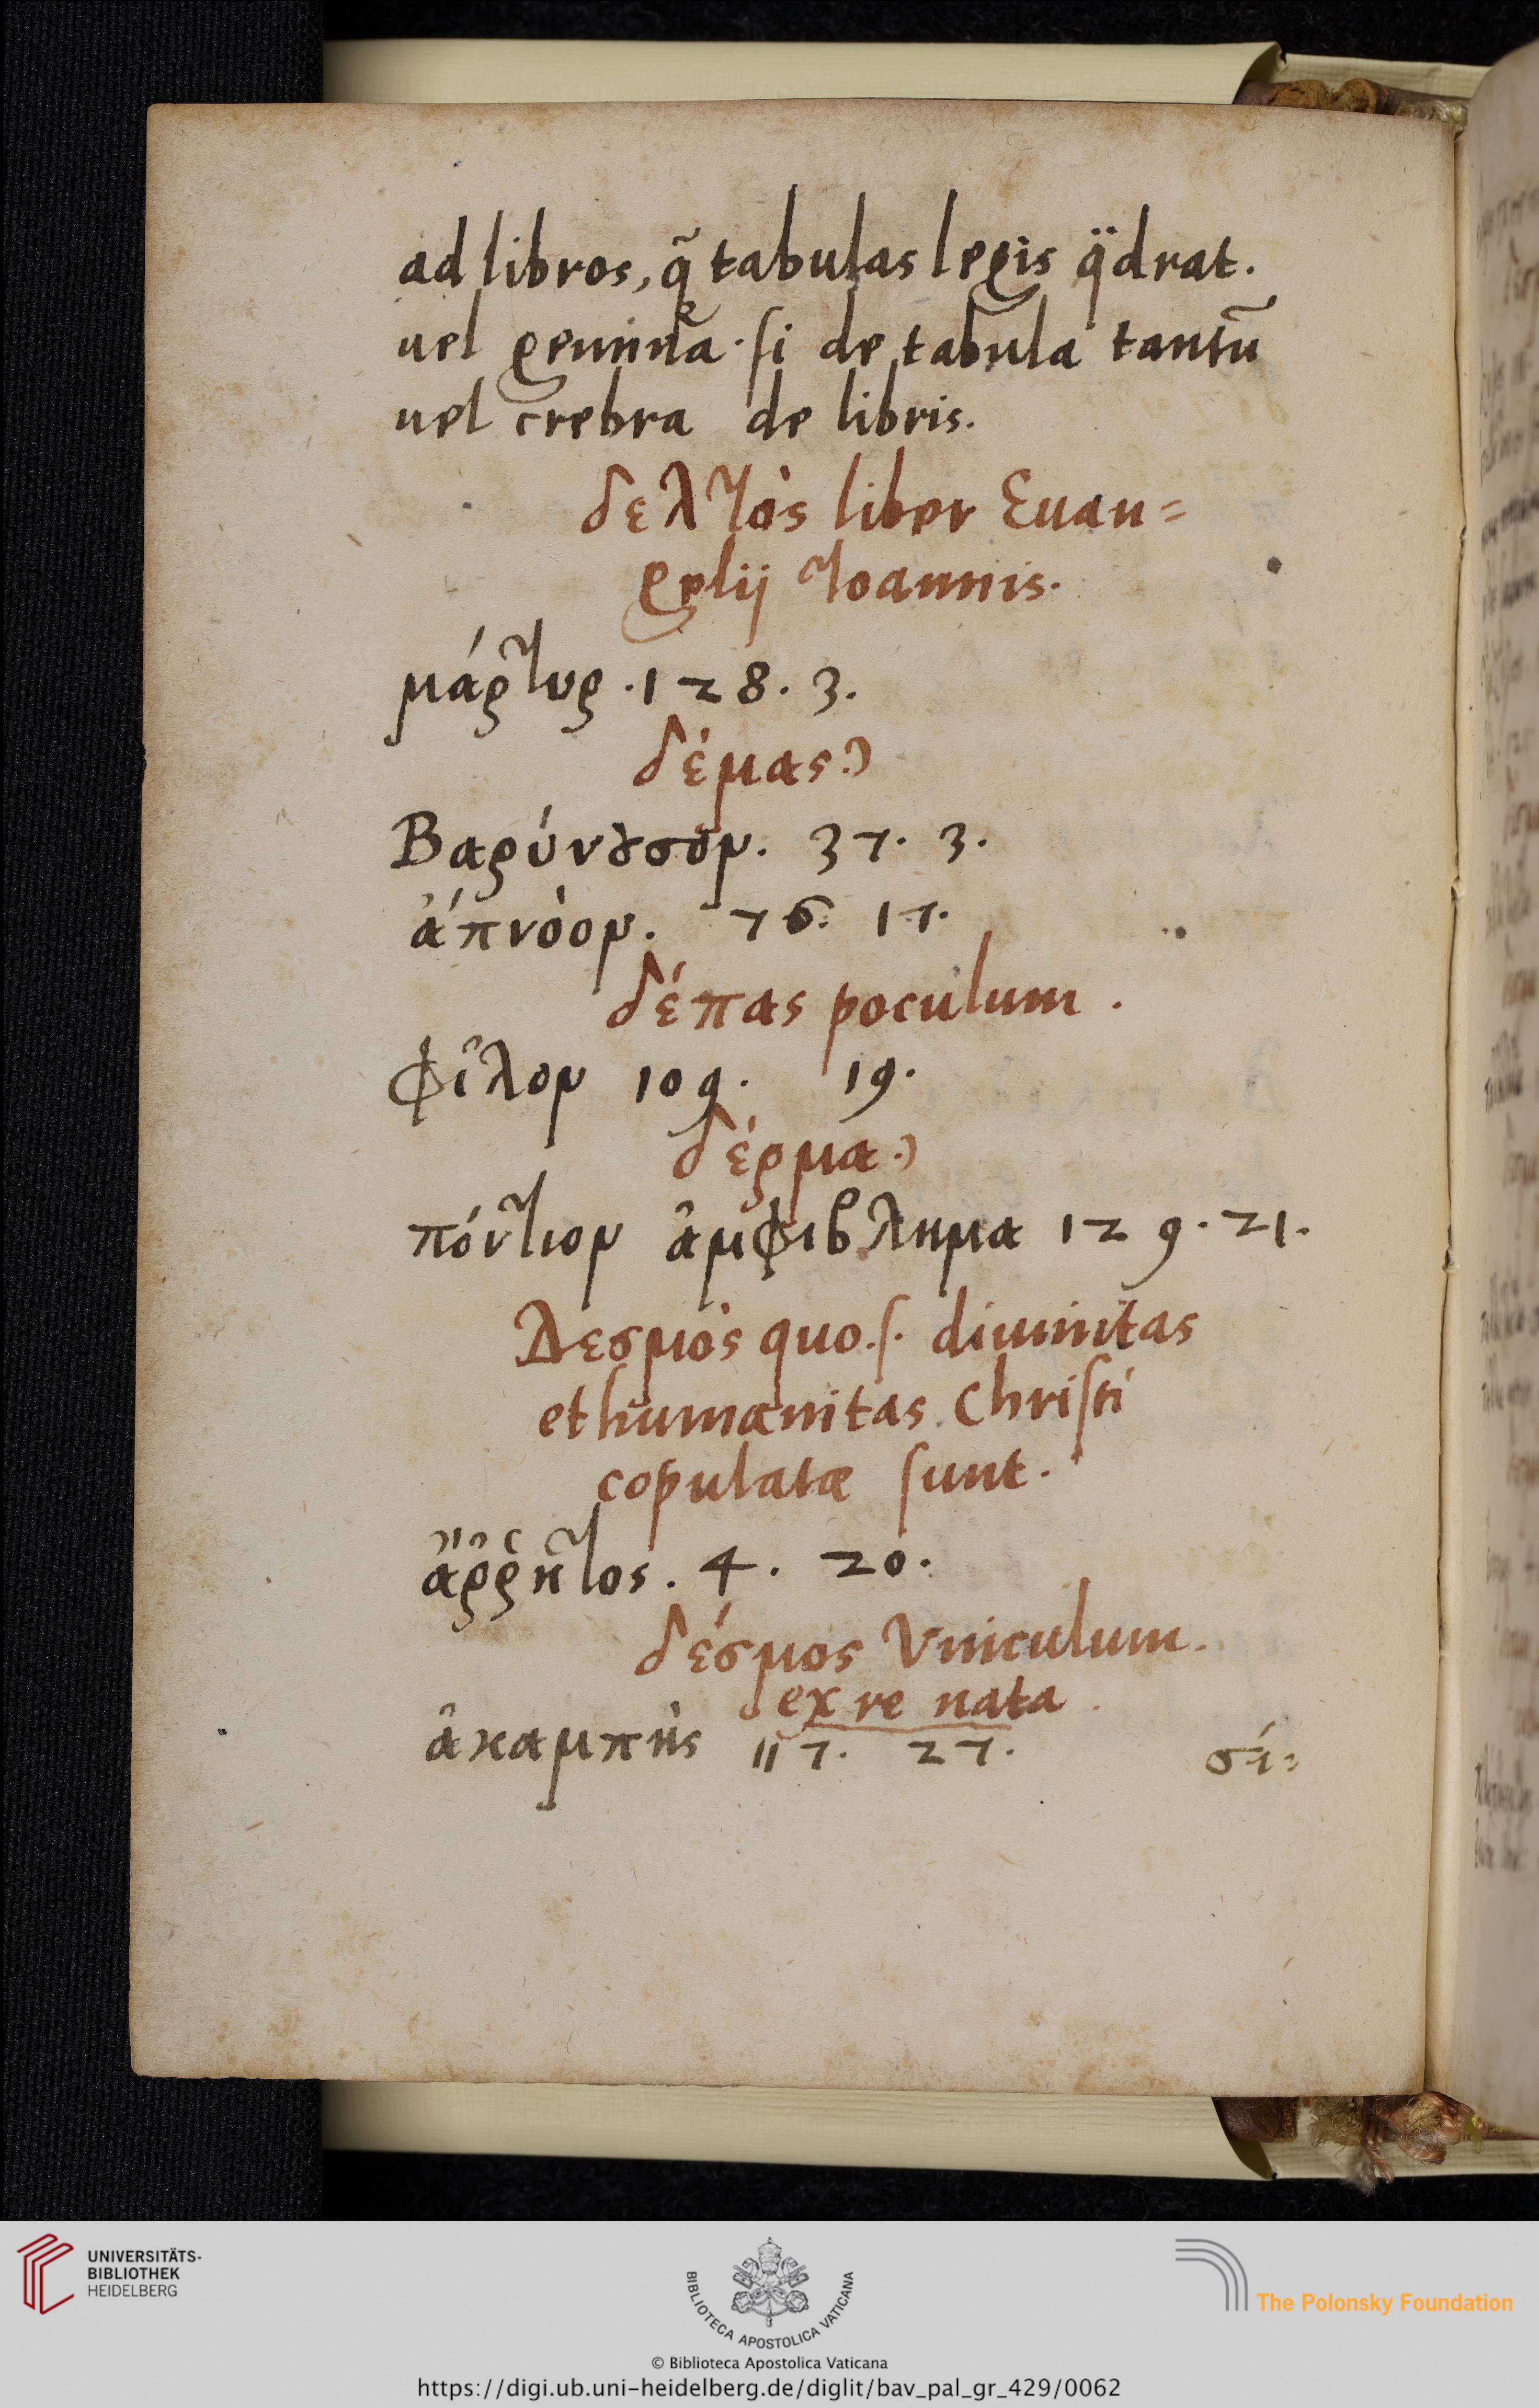 ad libros, q̃ tabulas legis q̈drat.
uel gemina. si de tabula tantũ
uel crebra de libris.
δελτὸς liber Euan=
gelij Joannis.
μάρτυρ. 128. 3.
δέμας
Βαρύνουσον. 37. 3.
ἄπνοον. 76. 17.
δέπας poculum.
Φίλον 109. 19.
δέρμα
πόντιον ἀμφίβλημα 129. 21.
Δεσμὸς quo. s. diuinitas
et humanitas Christi
copulatæ sunt.
ἄῤῥητος. 4. 20.
δέσμος Vniculum.
ex re nata.
ἀκαμπὴς 117. 27.
σί=
UNIVERSITÄTS-
BIBLIOTHEK
HEIDELBERG
BIBLIOTECA APOSTOLICA VATICANA
© Biblioteca Apostolica Vaticana
The Polonsky Foundation
https://digi.ub.uni-heidelberg.de/diglit/bav_pal_gr_429/0062